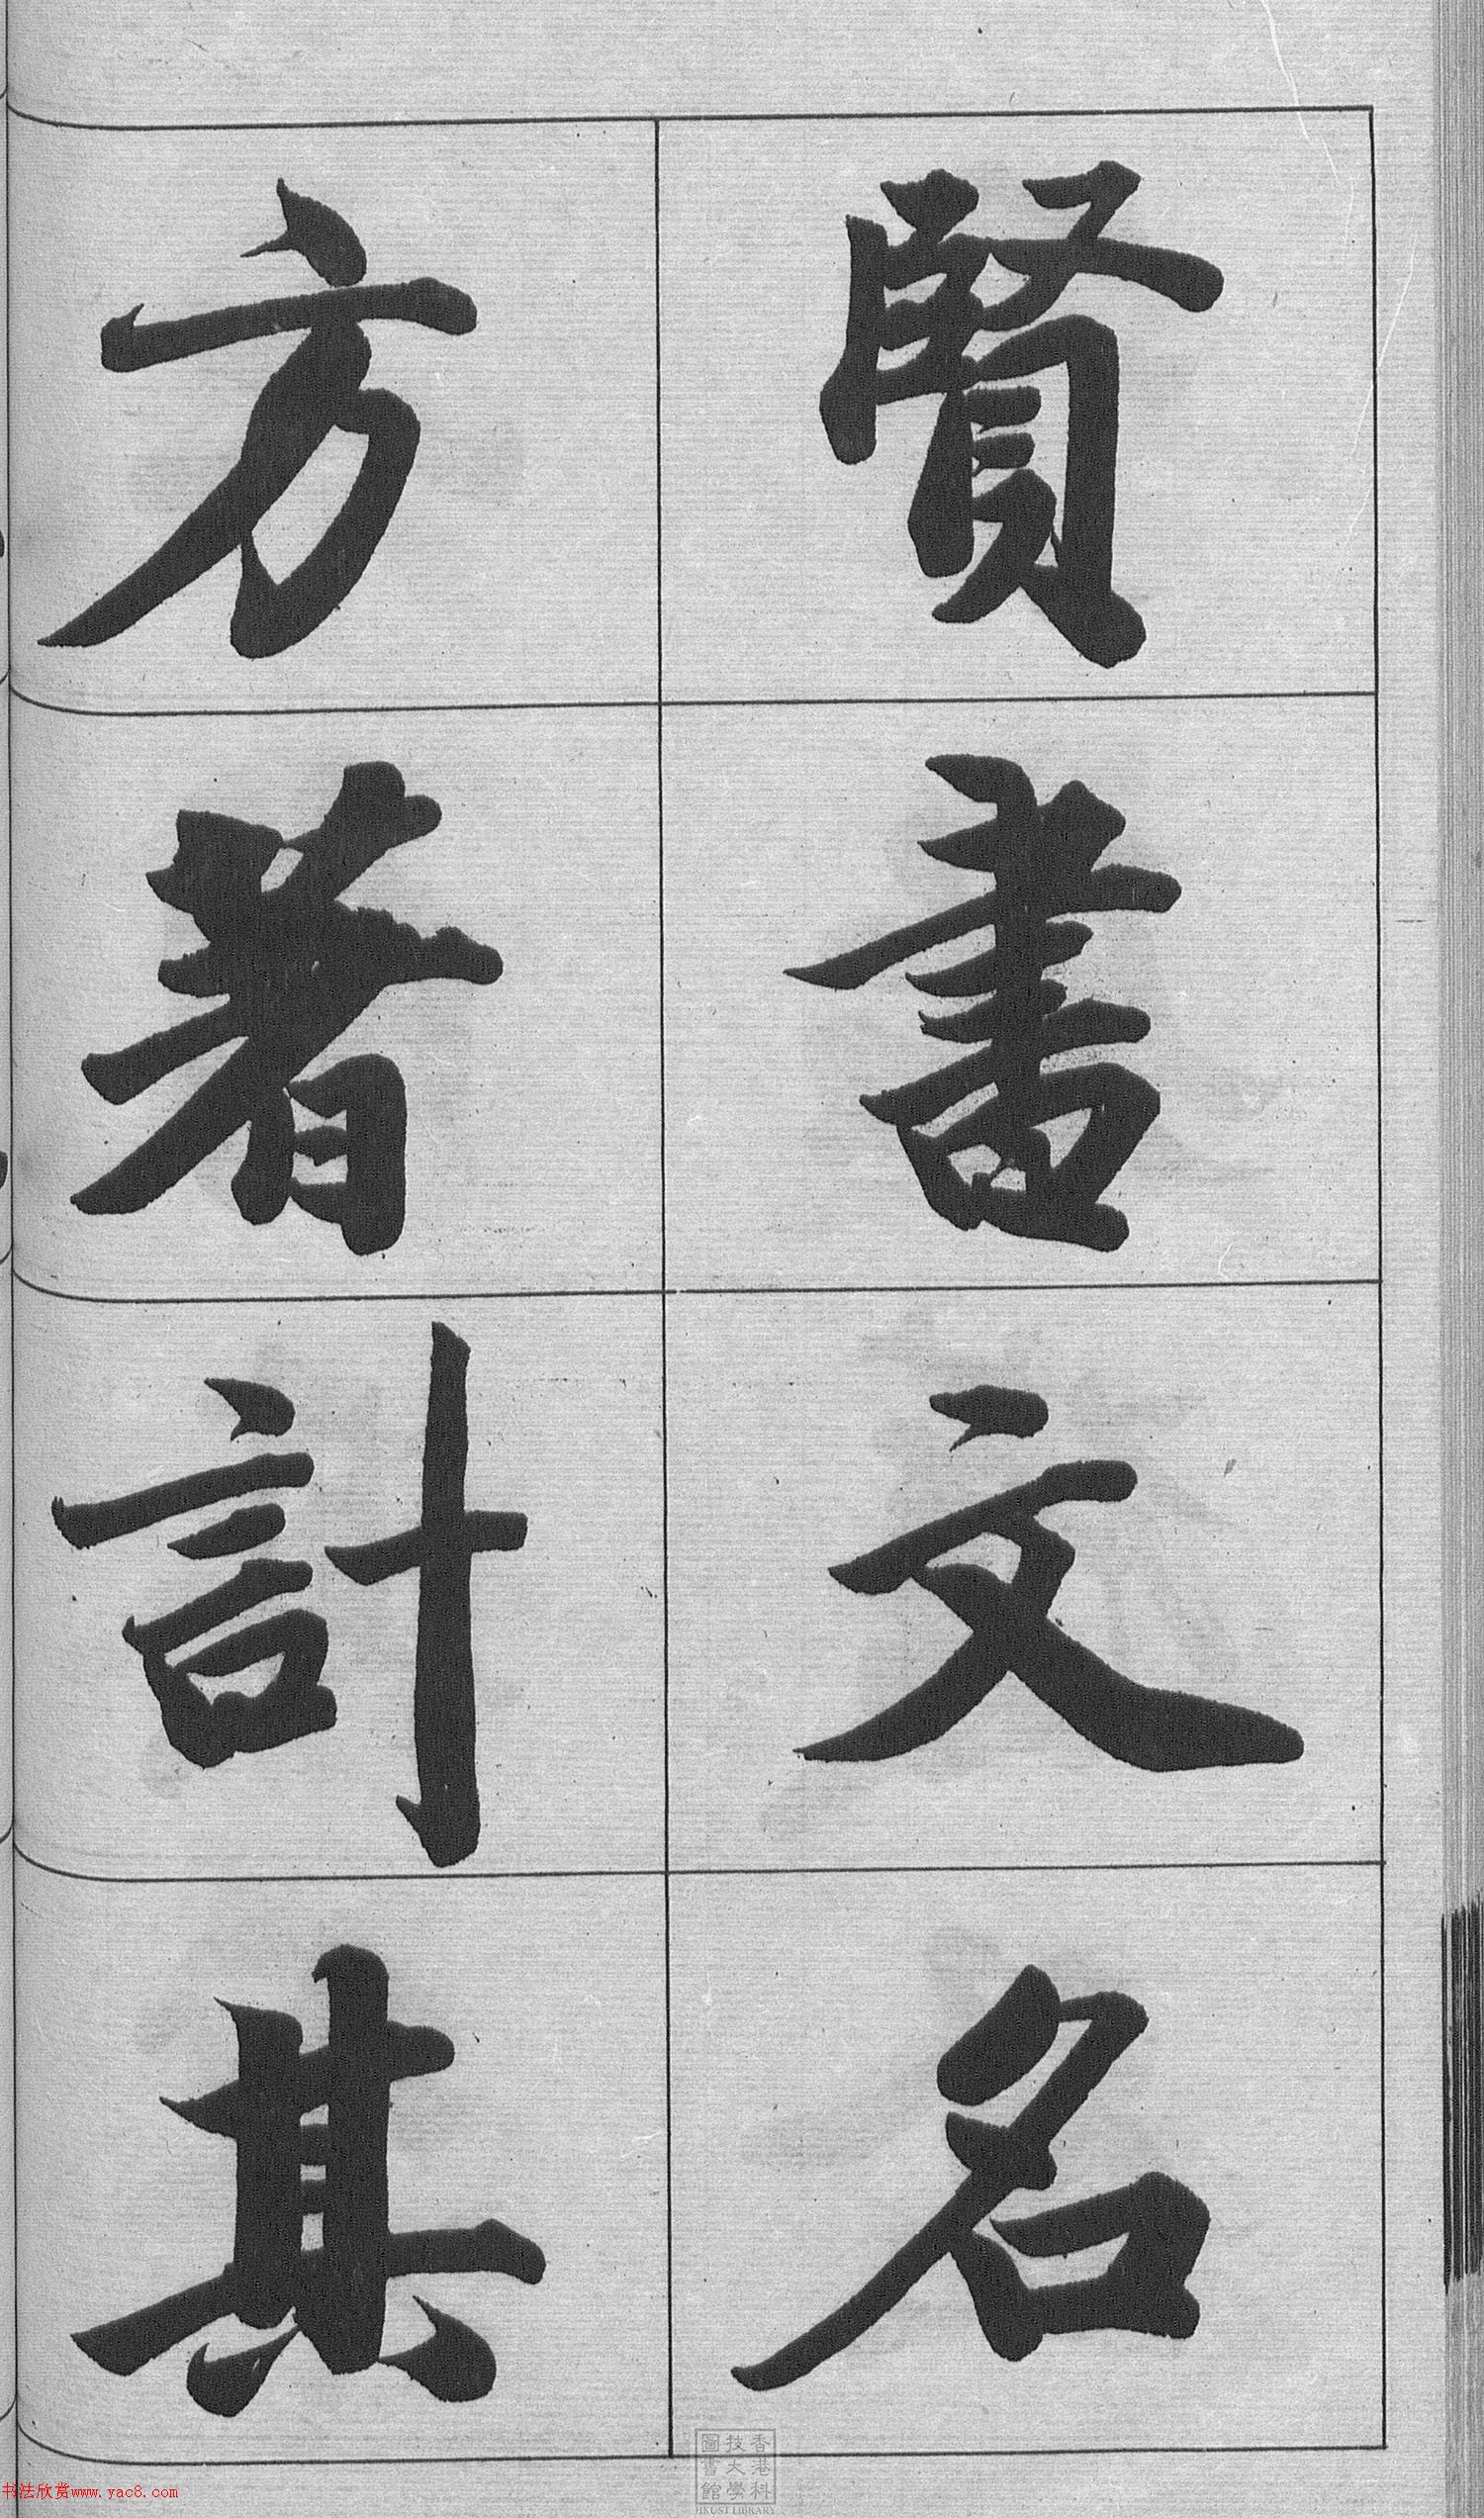 賢書文名
方著計其
香港科
技大學
圖書館
HKUST LIBRARY
书法欣赏www.yac8.com